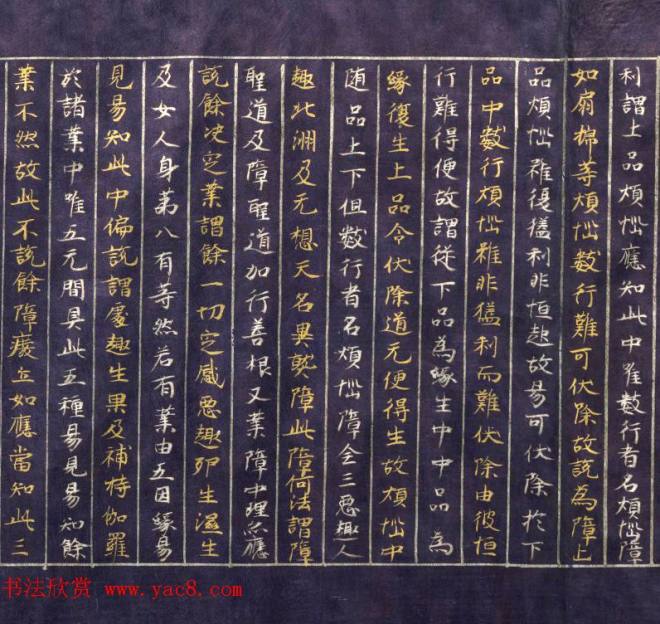 利謂上品煩惱應知此中唯數行者名煩惱障
如扇搋等煩惱數行難可伏除故說為障上
品煩惱雖復猛利非恒起故易可伏除於下
品中數行煩惱雖非猛利而難伏除由彼恒
行難得便故謂從下品為緣生中中品為
緣復生上品令伏除道无便得生故煩惱中
随品上下但數行者名煩惱障全三惡趣人
趣北洲及无想天名異熟障此障何法謂障
聖道及障聖道加行善根又業障中理亦應
說餘决定業謂餘一切定感惡趣卵生濕生
及女人身第八有等然若有業由五因緣易
見易知此中偏說謂處趣生果及補特伽羅
於諸業中唯五无間具此五種易見易知餘
業不然故此不說餘障廢立如應當知此三
书法欣赏 www.yac8.com